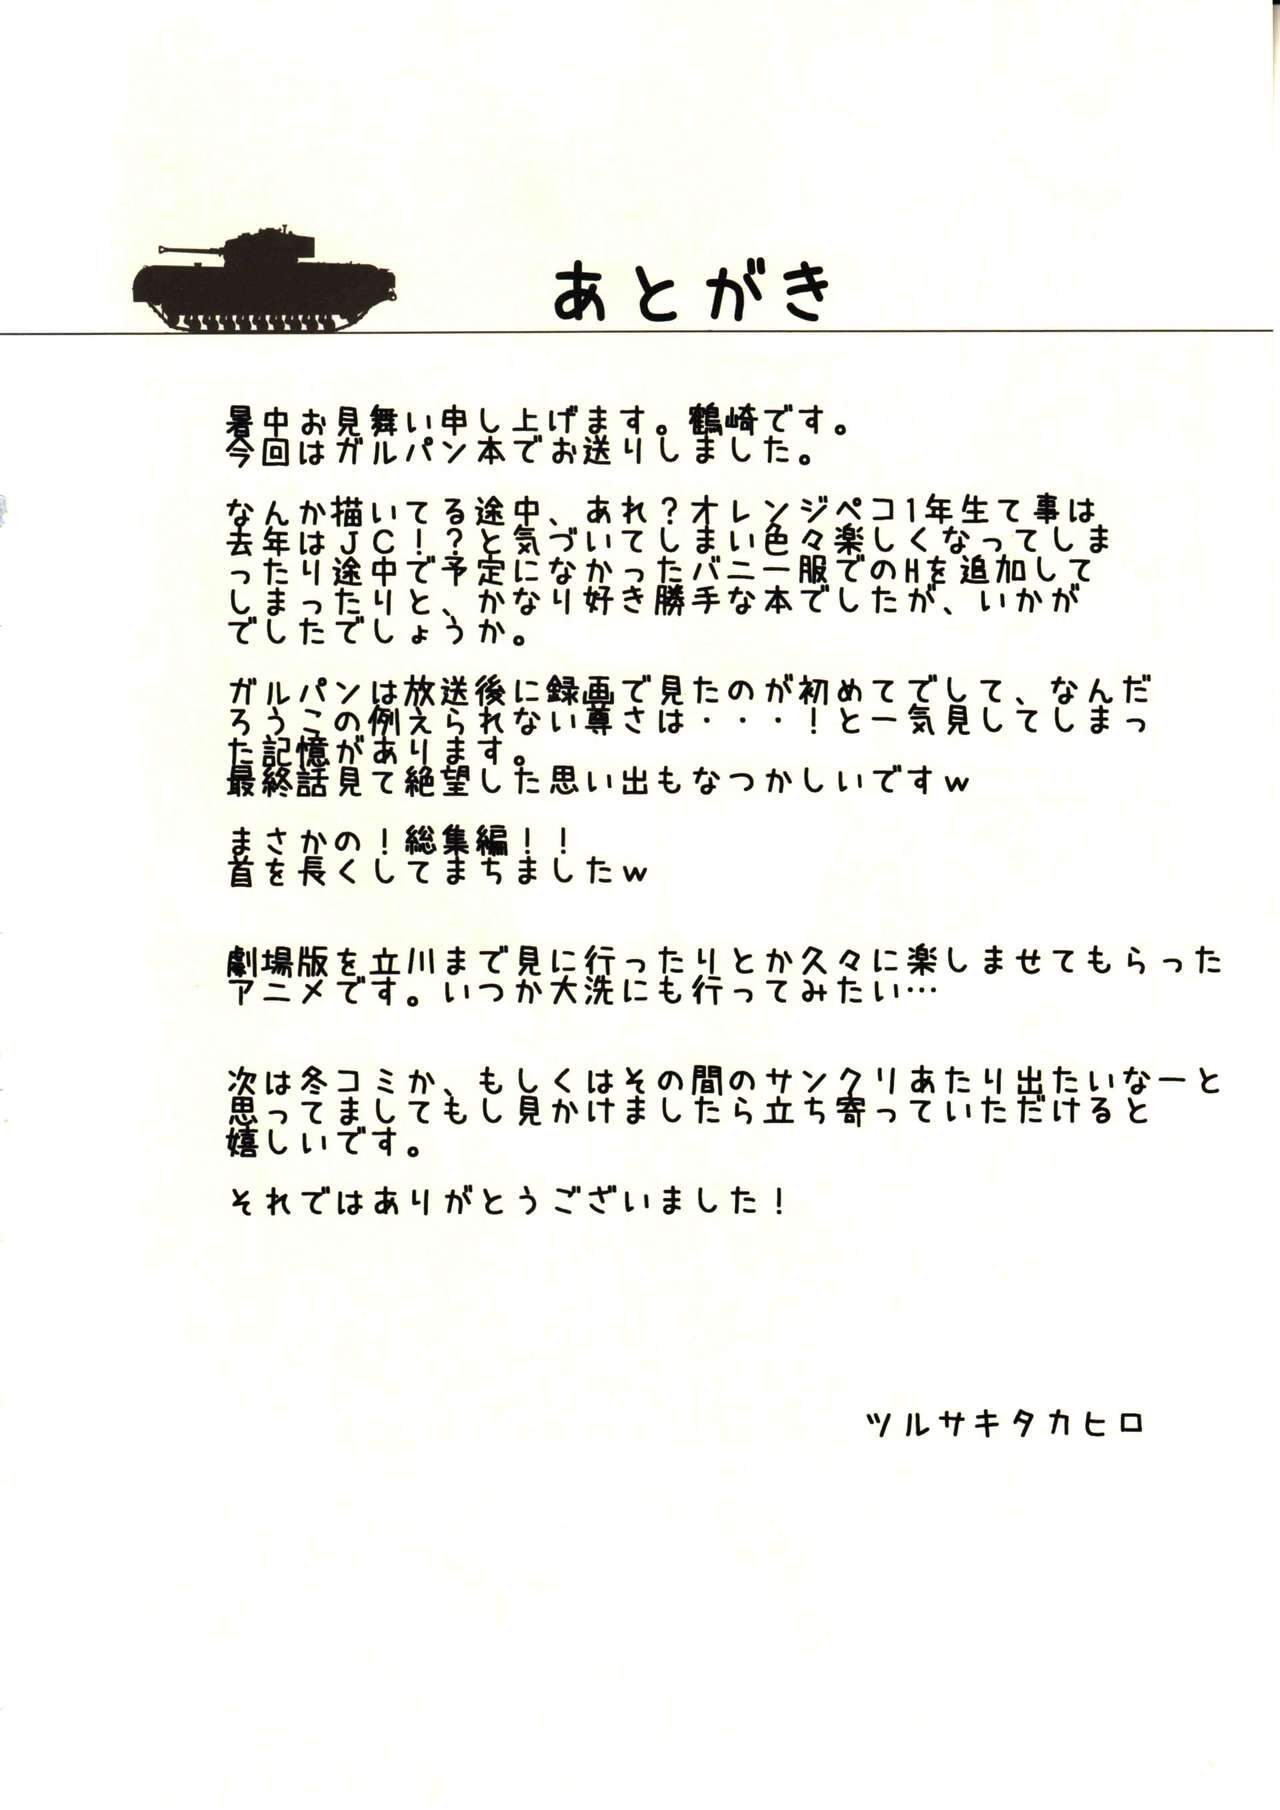 あとがき
暑中お見舞い申し上げます。鶴崎です。
今回はガルパン本でお送りしました。
なんか描いてる途中、あれ？オレンジペコ1年生て事は
去年はＪＣ！？と気づいてしまい色々楽しくなってしま
ったり途中で予定になかったバニー服でのHを追加して
しまったりと、かなり好き勝手な本でしたが、いかが
でしたでしょうか。
ガルパンは放送後に録画で見たのが初めてでして、なんだ
ろうこの例えられない尊さは・・・！と一気見してしまっ
た記憶があります。
最終話見て絶望した思い出もなつかしいですｗ
まさかの！総集編！！
首を長くしてまちましたｗ
劇場版を立川まで見に行ったりとか久々に楽しませてもらった
アニメです。いつか大洗にも行ってみたい…
次は冬コミか、もしくはその間のサンクリあたり出たいなーと
思ってましてもし見かけましたら立ち寄っていただけると
嬉しいです。
それではありがとうございました！
ツルサキタカヒロ